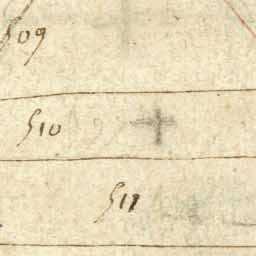 509
510
511